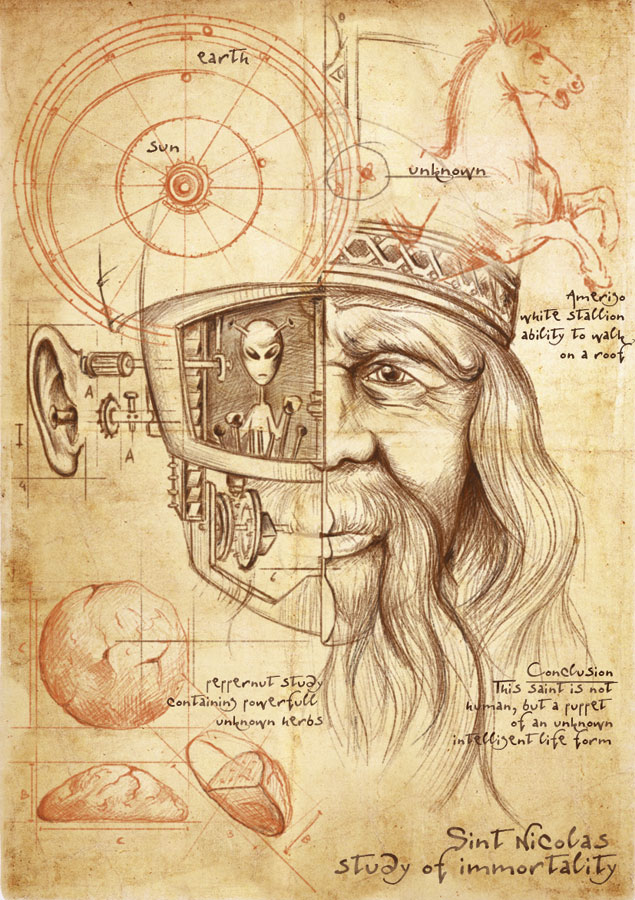 earth
sun
unknown
Amerigo
white stallion
ability to walk
on a roof
A
A
I
4
C
C
peppernut study
containing powerfull
unknown herbs
Conclusion
This saint is not
human, but a puppet
of an unknown
intelligent life form
B
C
3
B
Sint Nicolas
study of immortality